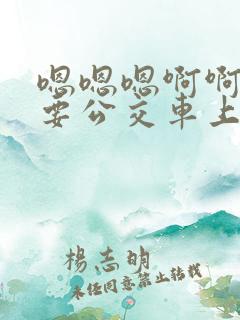 嗯嗯嗯啊啊
要公交車上
楊志明
未经同意禁止转载